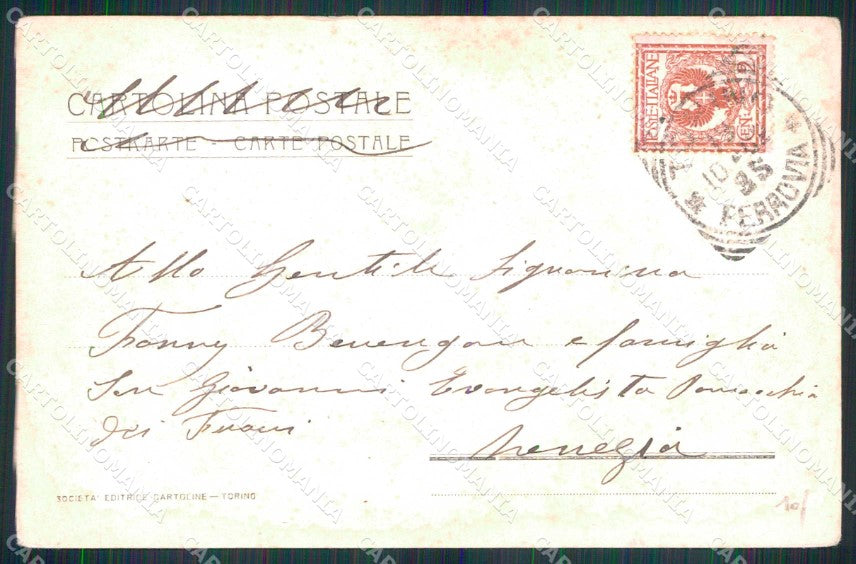 CARTOLINA POSTALE
POSTKARTE - CARTE POSTALE
POSTE ITALIANE
CEN. 2
10
25
* FERROVIA *
Alla Gentile Signorina
Fanny e famiglia
San Giovanni Evangelista Parocchia
dei Frari
Venezia
SOCIETA' EDITRICE CARTOLINE — TORINO
10/
CARTOLINOMANIA